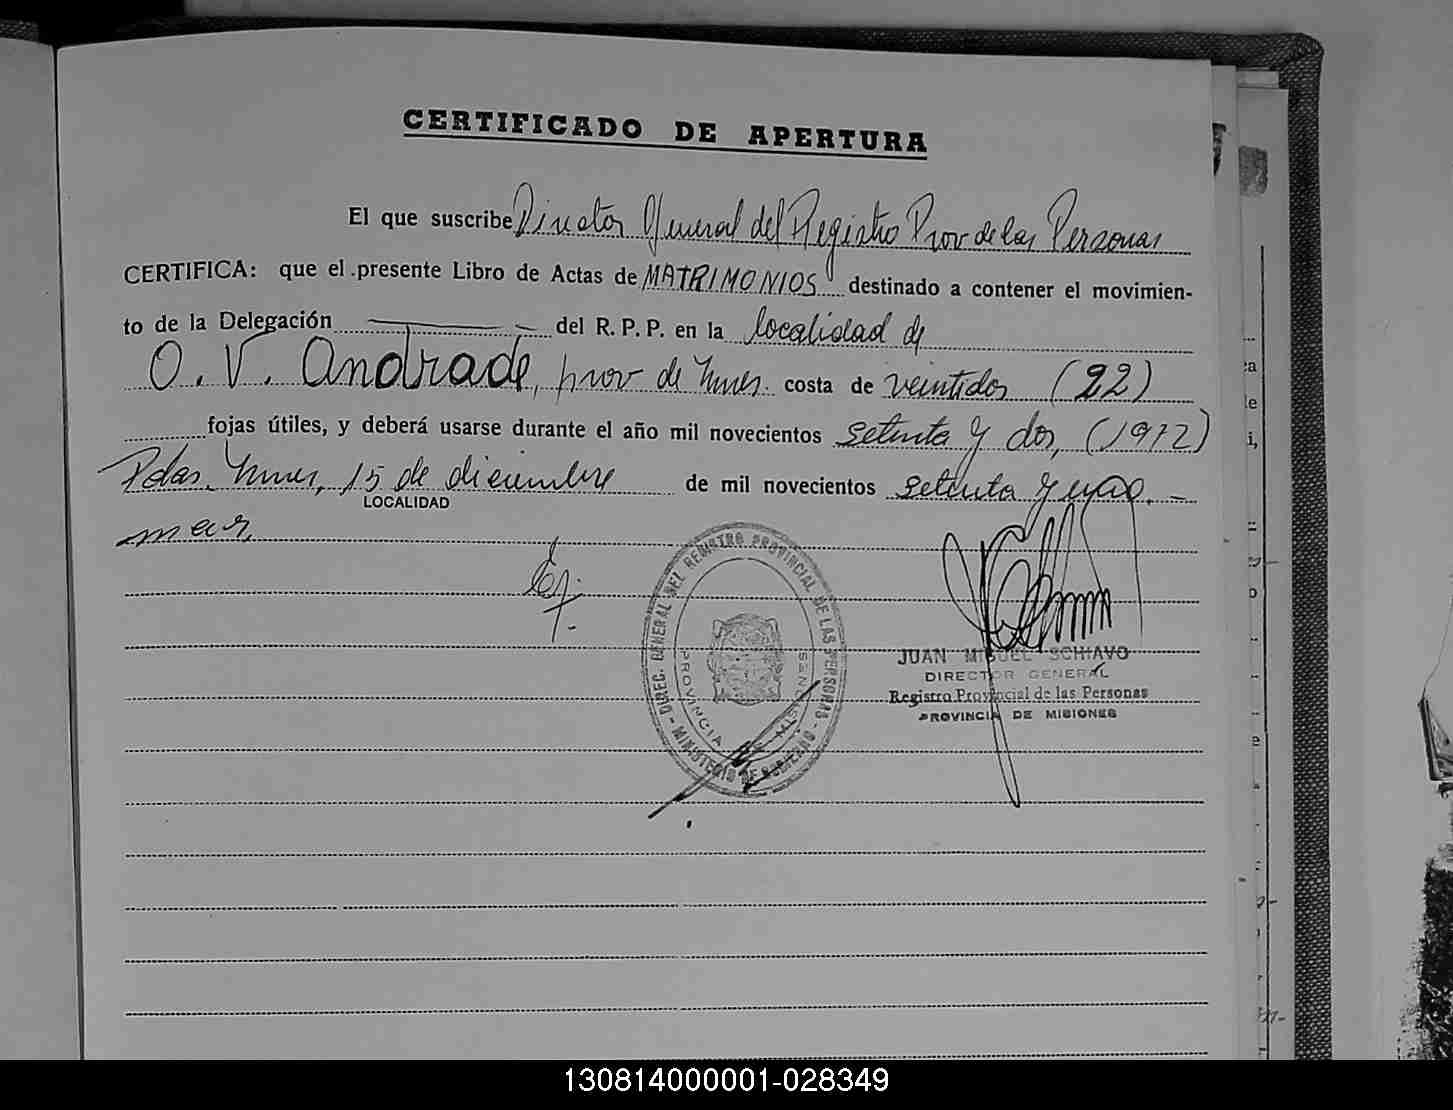 CERTIFICADO DE APERTURA
El que suscribe Director General del Registro Prov de las Personas
CERTIFICA: que el presente Libro de Actas de MATRIMONIOS destinado a contener el movimien-
to de la Delegación del R. P. P. en la localidad de
O. V. Andrade, prov de costa de veintidos (22)
fojas útiles, y deberá usarse durante el año mil novecientos setenta y dos, (1972)
Pdas. 15 de diciembre de mil novecientos setenta y uno. -
LOCALIDAD
DIREC. GENERAL DEL REGISTRO PROVINCIAL DE LAS PERSONAS - MINISTERIO DE GOBIERNO -
PROVINCIA DE MISIONES
JUAN MIGUEL SCHIAVO
DIRECTOR GENERAL
Registro Provincial de las Personas
PROVINCIA DE MISIONES
130814000001-028349